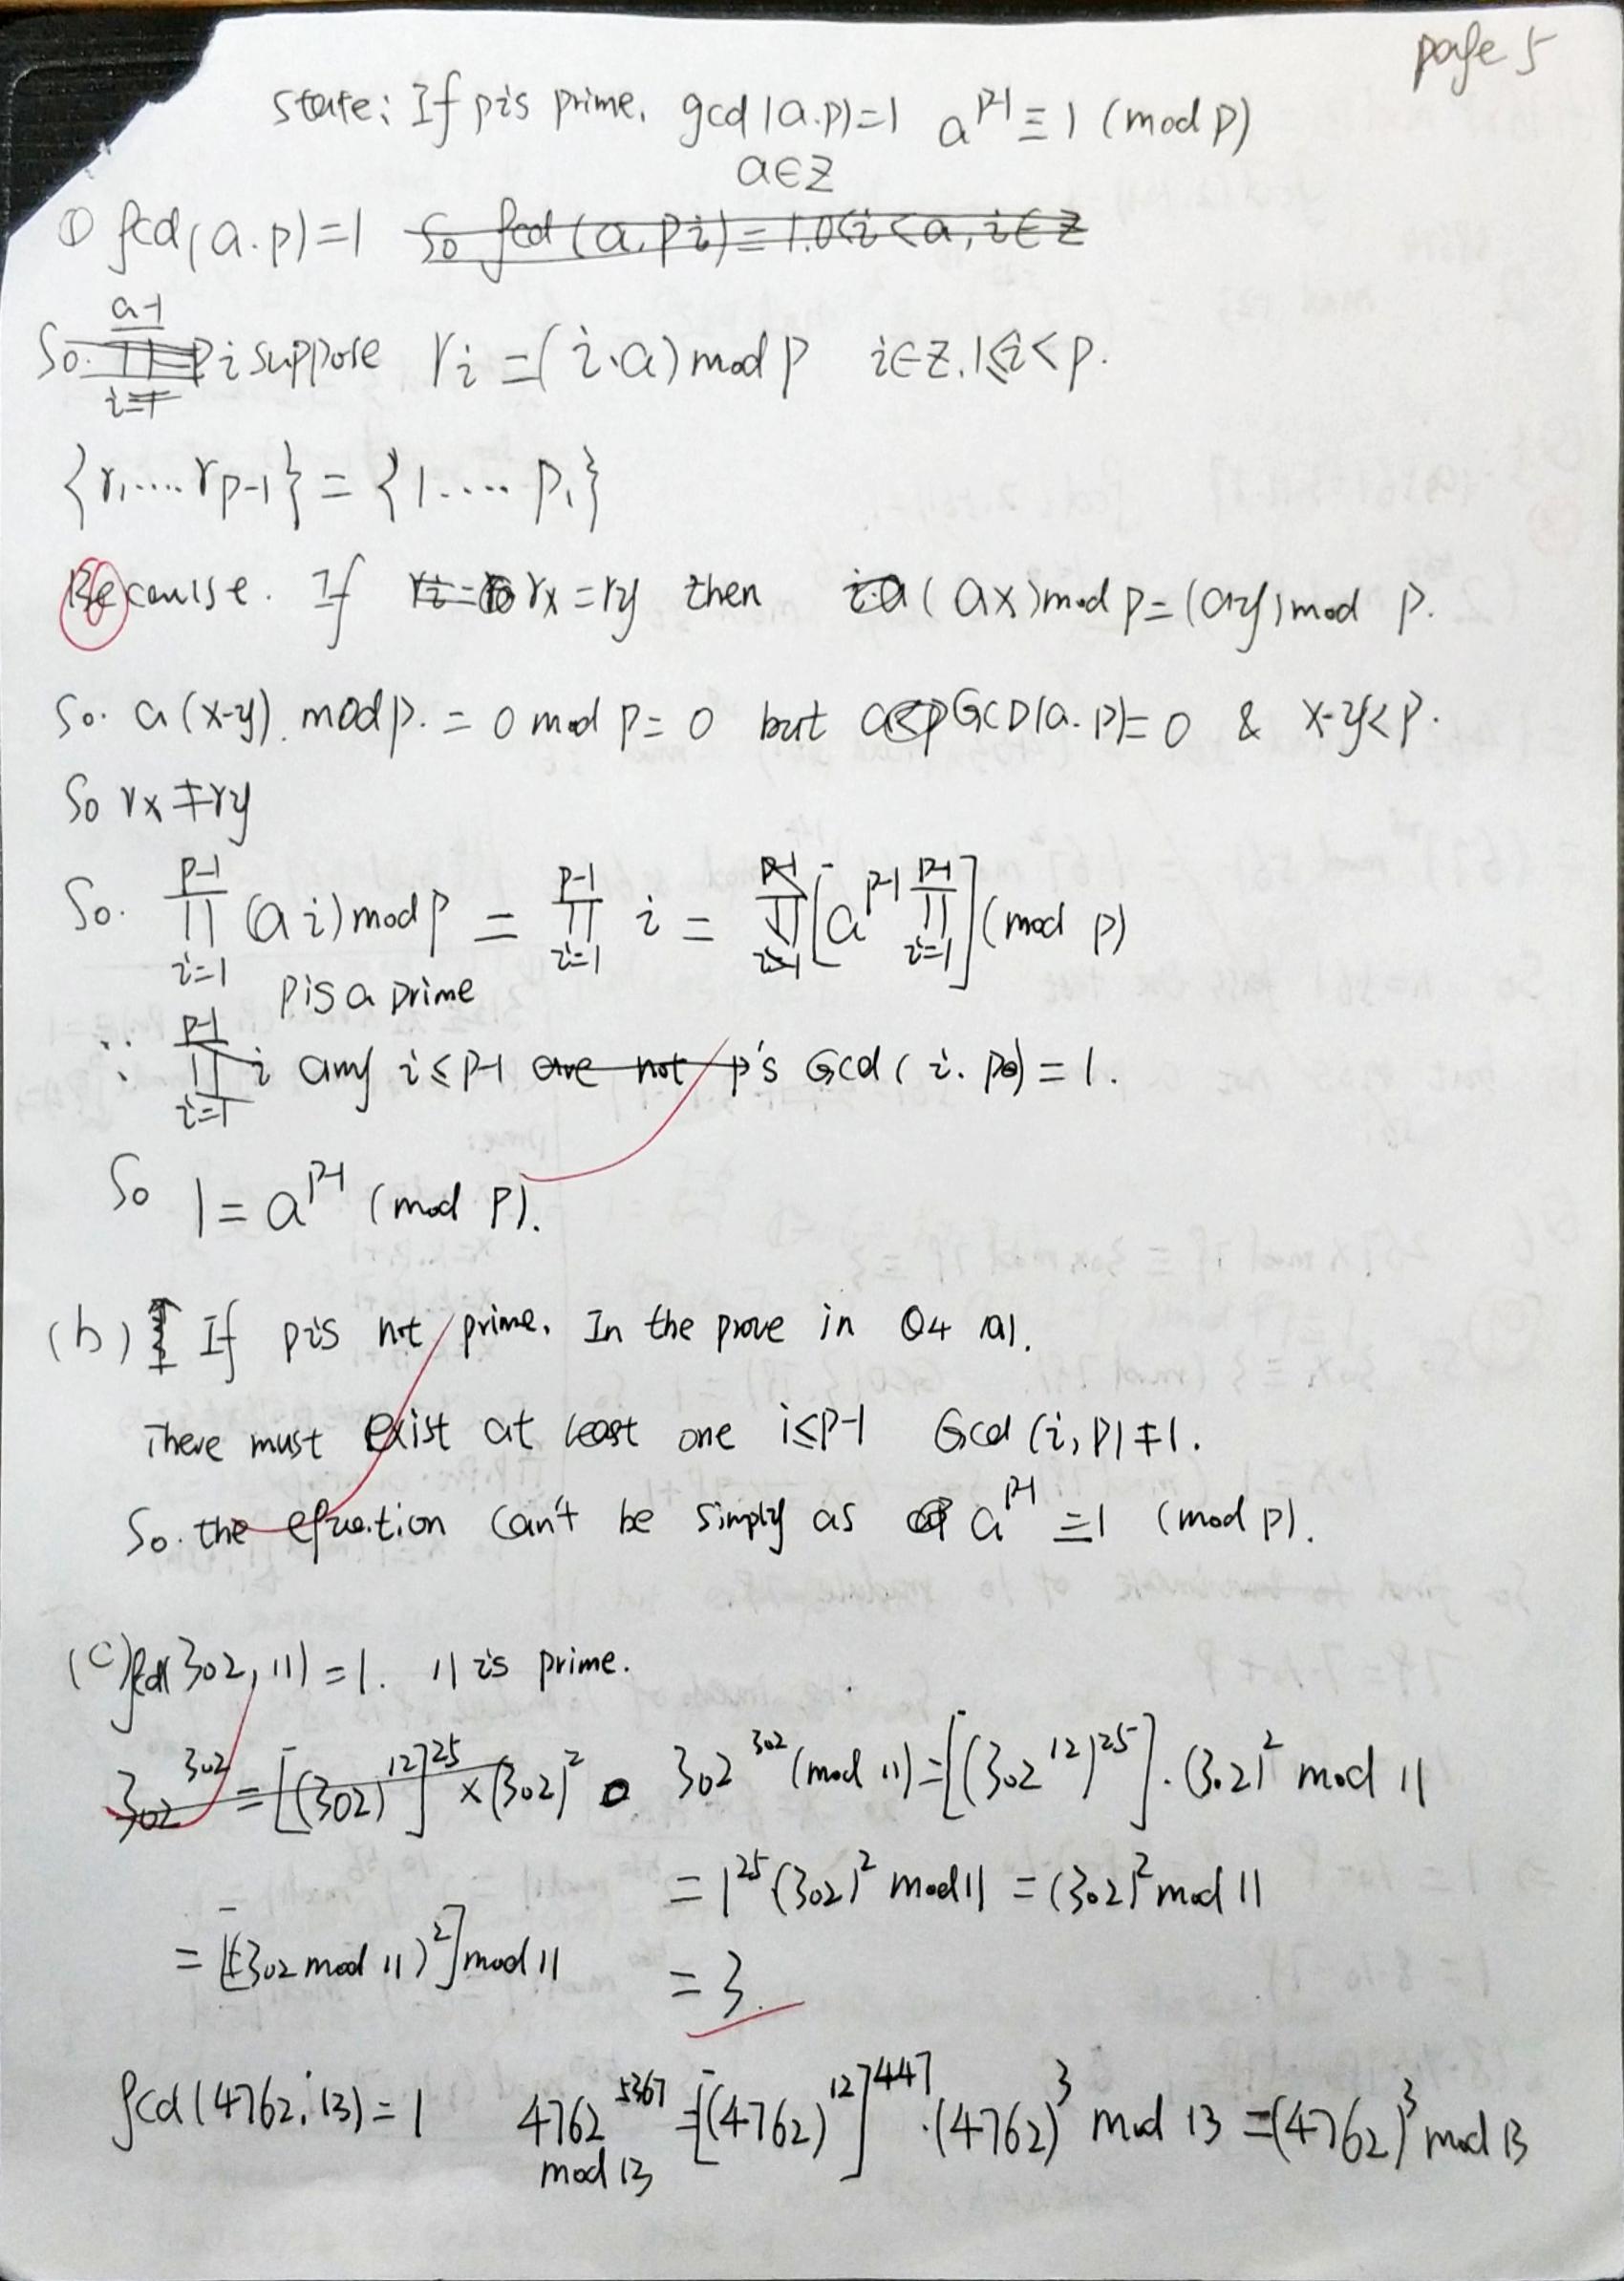 page 5
State: If p is prime. gcd(a.p)=1 a^{p-1} ≡ 1 (mod p)
a∈Z
① gcd(a.p)=1 So gcd(a.pi)=1.0<i<a, i∈Z
So. ∏_{i=1}^{a-1} pi suppose r_i = (i·a) mod p i∈Z.1≤i<p.
{r_1....r_{p-1}} = {1.... p_1}
Because. If r_x = r_y then (ax) mod p = (ay) mod p.
So. a(x-y). mod p. = 0 mod p = 0 but a<p GCD(a.p)=0 & x-y<p.
So r_x ≠ r_y
So. ∏_{i=1}^{p-1} (ai) mod p = ∏_{i=1}^{p-1} i = ∏_{i=1}^{p-1} [a^{p-1} ∏_{i=1}^{p-1}] (mod p)
p is a prime
∵ ∏_{i=1}^{p-1} i any i≤p-1 are not p's Gcd(i.p)=1.
So 1 = a^{p-1} (mod p).
(b) If p is not prime. In the prove in Q4 (a).
There must exist at least one i≤p-1 Gcd(i,p)≠1.
So. the equation can't be simply as a^{p-1} ≡1 (mod p).
(c) gcd(302,11)=1. 11 is prime.
302^{302} = [(302)^{12}]^{25} × (302)^2 302^{302} (mod 11) = [(302^{12})^{25}]·(302)^2 mod 11
= 1^{25}(302)^2 mod 11 = (302)^2 mod 11
= [(302 mod 11)^2] mod 11 = 3.
gcd(4762,13)=1 4762^{5367} = [(4762)^{12}]^{447}·(4762)^3 mod 13 = (4762)^3 mod 13
mod 13